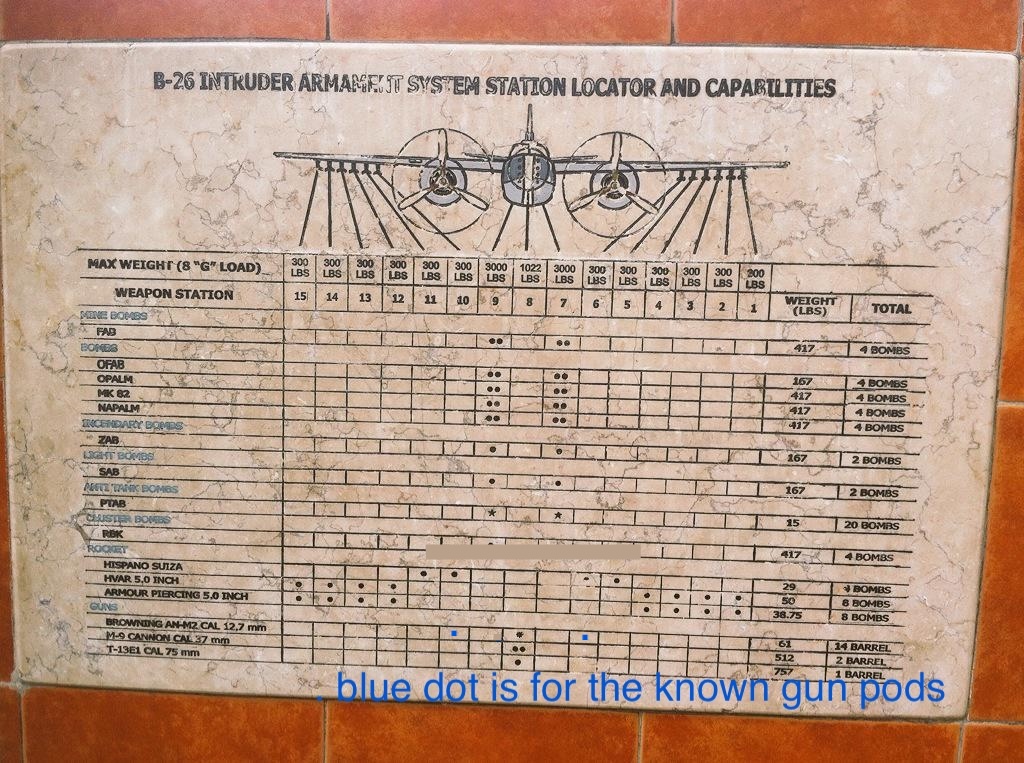 B-26 INTRUDER ARMAMENT SYSTEM STATION LOCATOR AND CAPABILITIES
MAX WEIGHT (8 "G" LOAD) 300 LBS 300 LBS 300 LBS 300 LBS 300 LBS 300 LBS 3000 LBS 1022 LBS 3000 LBS 300 LBS 300 LBS 300 LBS 300 LBS 300 LBS 200 LBS
WEAPON STATION 15 14 13 12 11 10 9 8 7 6 5 4 3 2 1 WEIGHT (LBS) TOTAL
MINE BOMBS
FAB 417 4 BOMBS
BOMBS
OFAB 167 4 BOMBS
OPALM 417 4 BOMBS
MK 82 417 4 BOMBS
NAPALM 417 4 BOMBS
INCENDARY BOMBS
ZAB 167 2 BOMBS
LIGHT BOMBS
SAB 167 2 BOMBS
ANTI TANK BOMBS
PTAB * * 15 20 BOMBS
CLUSTER BOMBS
RBK 417 4 BOMBS
ROCKET
HISPANO SUIZA 29 BOMBS
HVAR 5,0 INCH 50 8 BOMBS
ARMOUR PIERCING 5.0 INCH 38.75 8 BOMBS
GUNS
BROWNING AN-M2 CAL 12,7 mm * 61 14 BARREL
M-9 CANNON CAL 37 mm 512 2 BARREL
T-13E1 CAL 75 mm 757 1 BARREL
blue dot is for the known gun pods